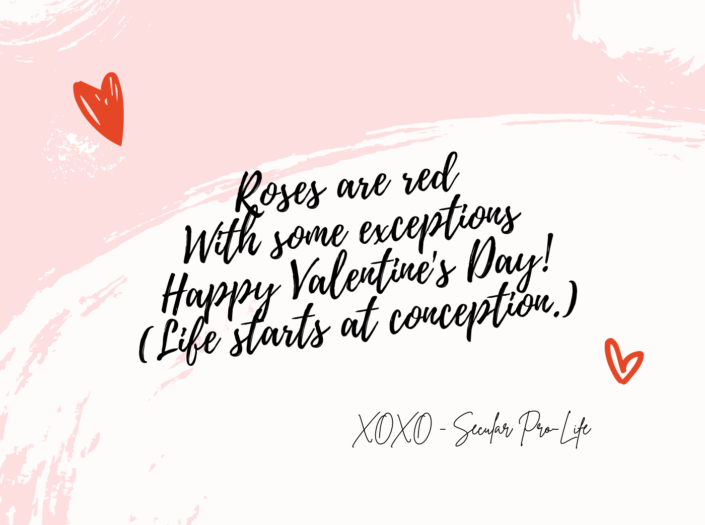 Roses are red
With some exceptions
Happy Valentine's Day!
(Life starts at conception.)
XOXO - Secular Pro-Life